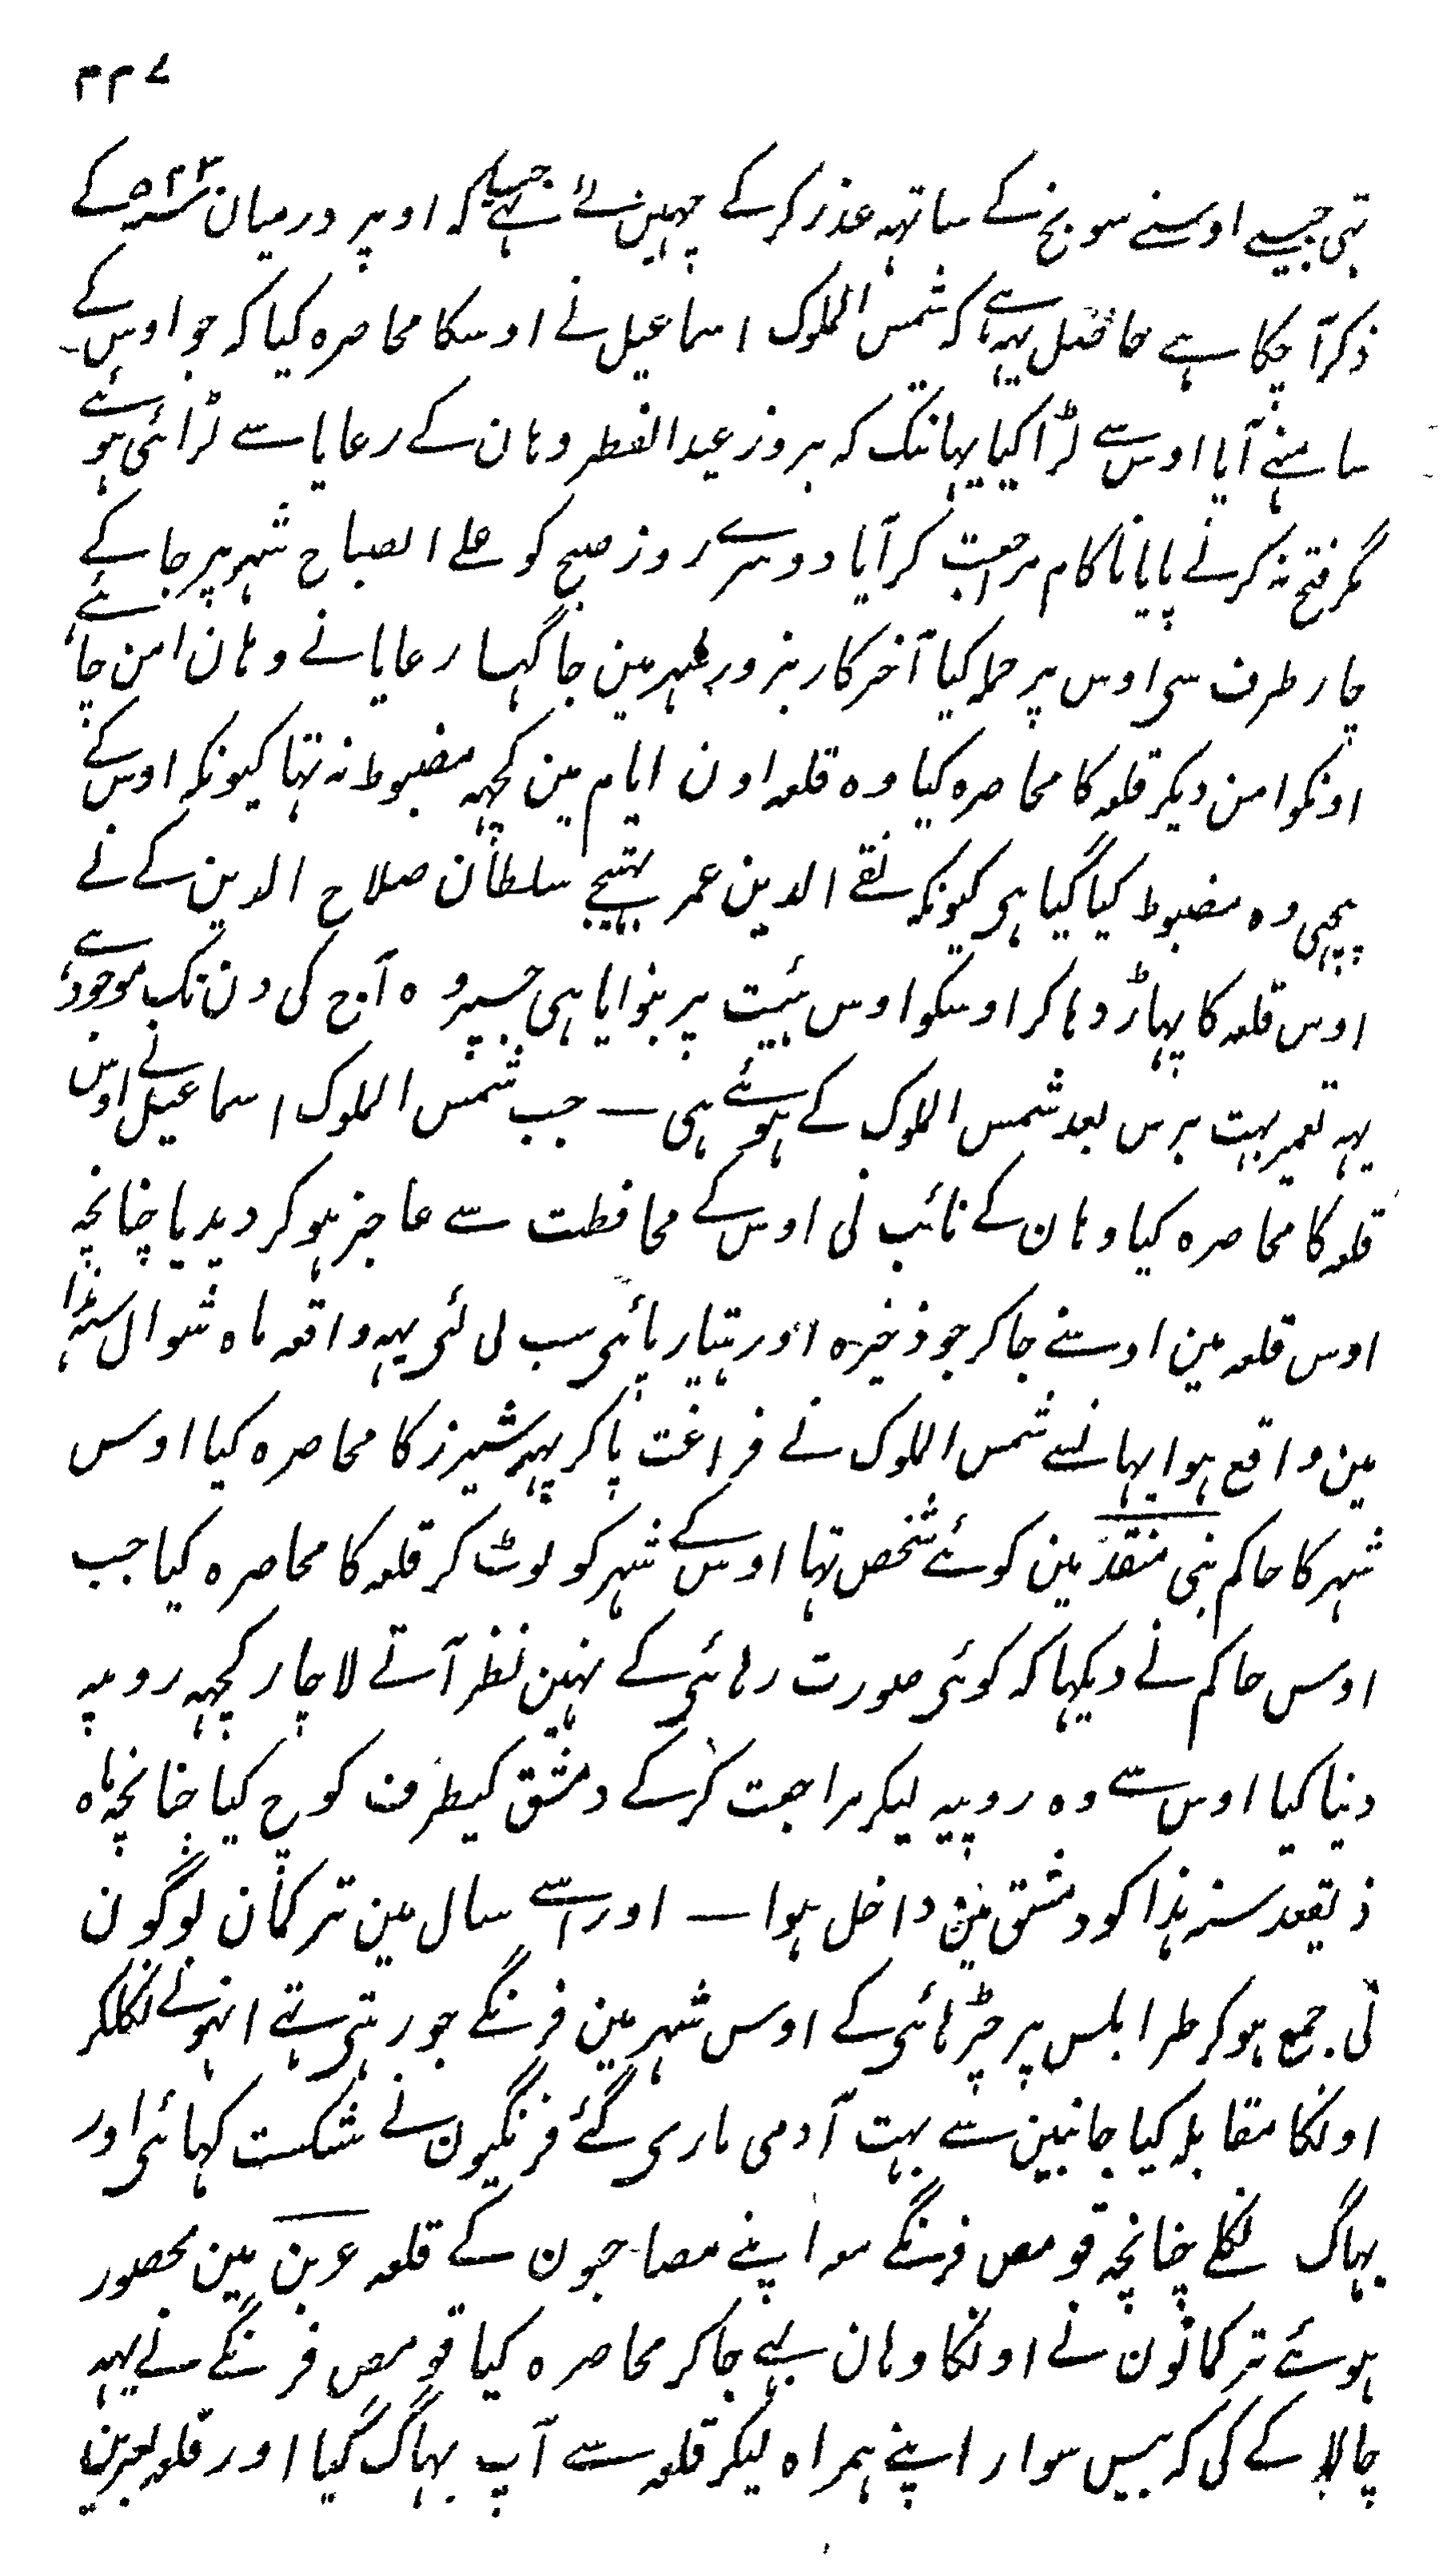 ۴۴۷
تہی جیسے اوسنے سونج کے ساتھہ عذر کر کے چہین لے تہے جیسیکہ اوپر درمیان سنہ ۵۲۳ کے
ذکر آ چکا ہے حاصل یہہ ہے کہ شمس الملوک اسماعیل نے اوسکا محاصرہ کیا کہ جو اوس کے
سامنے آیا اوس سے لڑا کیا یہانتک کہ بروز عید الفطر وہان کے رعایا سے لڑائی ہوئے
مگر فتح نہ کرنے پایا ناکام مراجعت کر آیا دوسرے روز صبح کو علے الصباح شہر پر جا کے
چار طرف سی اوس پر حملہ کیا آخر کار بزور شہر مین جا گہسا رعایا نے وہان امن چاہے
اونکو امن دیکر قلعہ کا محاصرہ کیا وہ قلعہ اون ایام مین کچہہ مضبوط نہ تہا کیونکہ اوس کے
پیچہی وہ مضبوط کیا گیا ہی کیونکہ تقے الدین عمر بہتیجے سلطان صلاح الدین کے نے
اوس قلعہ کا پہاڑ دہا کر اوسکو اوس ہئیت پر بنوایا ہی جسپر وہ آج کی دن تک موجود ہے
یہہ تعمیر بہت برس بعد شمس الملوک کے ہوئے ہی — جب شمس الملوک اسماعیل نے اوس
قلعہ کا محاصرہ کیا وہان کے نائب نی اوس کے محافظت سے عاجز ہو کر دیدیا چنانچہ
اوس قلعہ مین اوسنے جا کر جو ذخیرہ اور ہتیار پائی سب لی لئی یہہ واقعہ ماہ شوال سنہ ہذا
مین واقع ہوا یہانسے شمس الملوک نے فراغت پا کر پہر شیرز کا محاصرہ کیا اوس
شہر کا حاکم بنی منقذ مین کوئے شخص تہا اوس کے شہر کو لوٹ کر قلعہ کا محاصرہ کیا جب
اوس حاکم نے دیکہا کہ کوئی صورت رہائی کے نہین نظر آتے لاچار کچہہ روپیہ
دینا کیا اوس سے وہ روپیہ لیکر مراجعت کر کے دمشق کیطرف کوچ کیا چنانچہ ماہ
ذیقعد سنہ ہذا کو دمشق مین داخل ہوا — اور اسے سال مین ترکمان لوگون
نی جمع ہو کر طرابلس پر چڑہائی کے اوس شہر مین فرنگے جو رہتی تہے انہونے نکلکر
اونکا مقابلہ کیا جانبین سے بہت آدمی ماری گئے فرنگیون نے شکست کہائی اور
بہاگ نکلے چنانچہ قومص فرنگے معہ اپنے مصاحبون کے قلعہ عربن مین محصور
ہوئے ترکمانون نے اونکا وہان بہے جا کر محاصرہ کیا قومص فرنگے نے یہہ
چالاکے کی کہ بیس سوار اپنے ہمراہ لیکر قلعہ سے آپ بہاگ گیا اور قلعہ بعرین